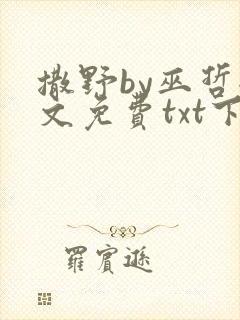 撒野by巫哲
文免費txt下
羅賓遜